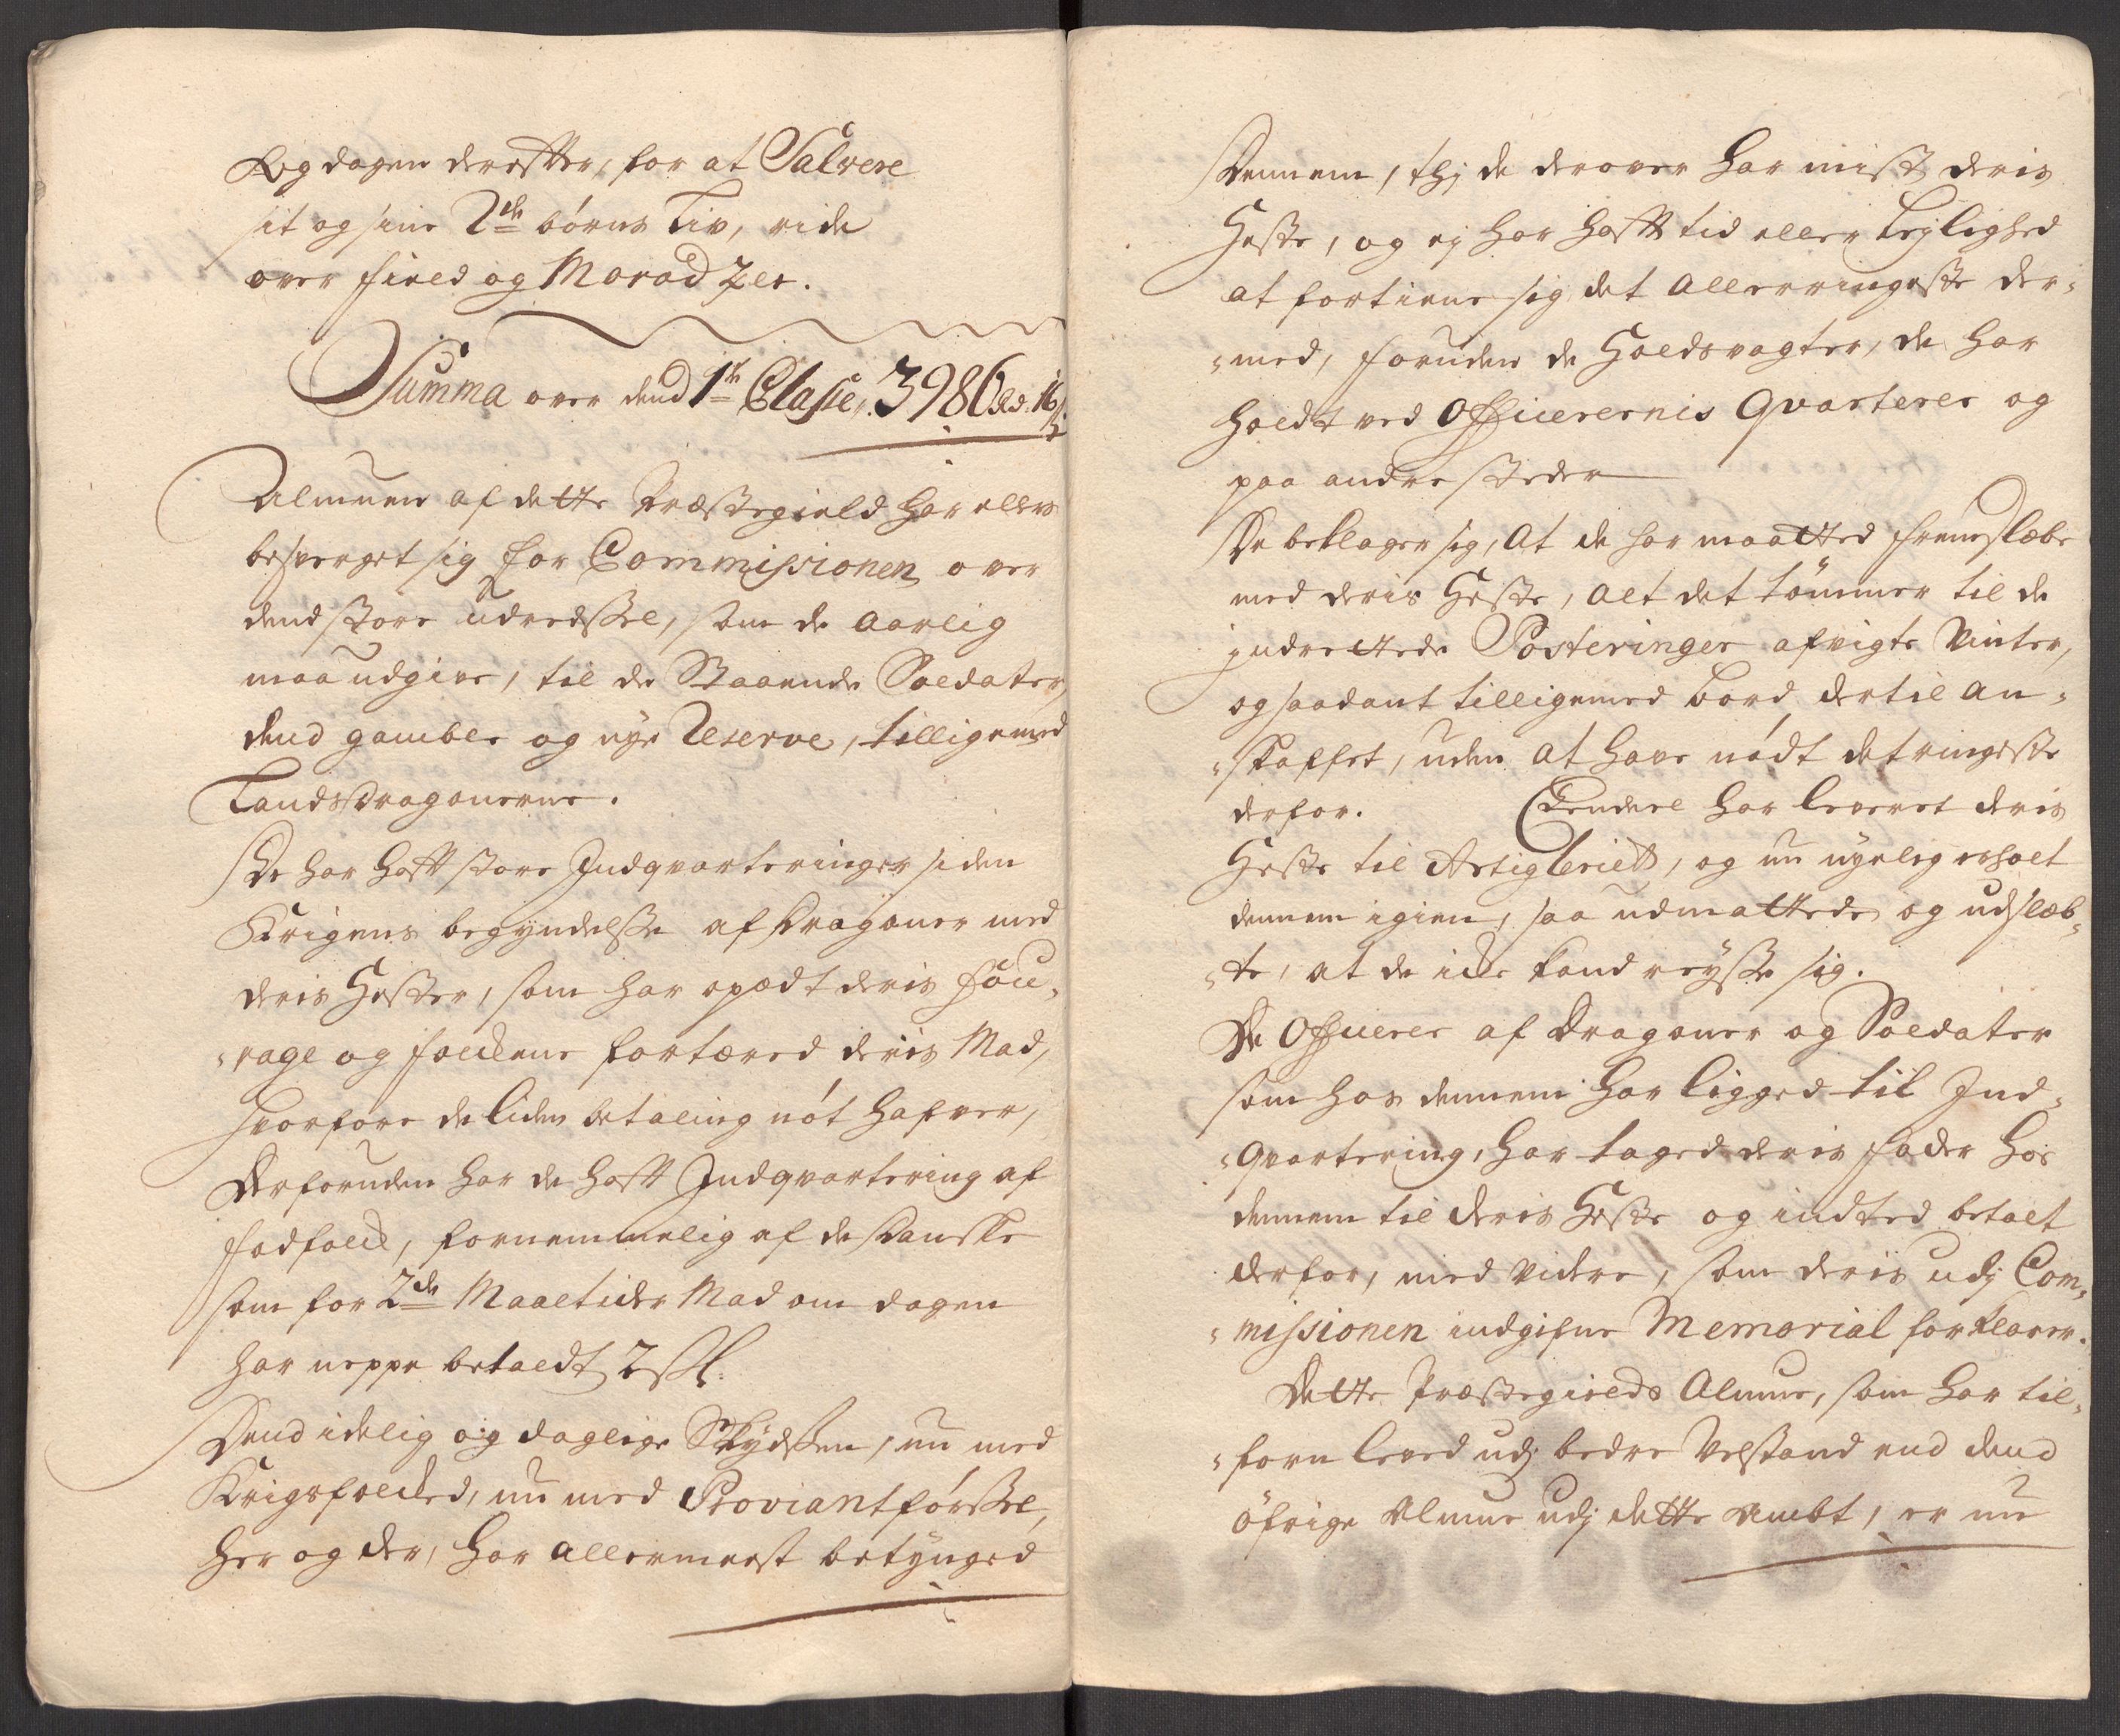 Og dagen derefter, for at Salvere
sit og sine 2de börns Liv, ride
over field og Moradzer.
Summa over dend 1te Classe, 3986 Rd. 16 s.
Almuen af dette Præstegield har ellers
besverget sig for Commissionen over
dend store udredssel, som de aarlig
maa udgive, til de Staaende Soldater,
dend gamble og nye Reserve, tilligemed
Landdragonerne.
De har hafft store Indqvarteringer siden
Krigens begyndelsse af Dragoner med
deris Hester, som har opædt deris fou-
-rage og folckene fortæred deris Mad,
hvorfore de liden betaling nöt hafver,
Derforuden har de hafft Indqvartering af
fodfolck, fornemmelig af de Danske
som for 2de Maaltider Mad om dagen
har neppe betaldt 2 sk.
Dend idelig og daglige Skydssen, nu med
Krigsfolcked, nu med Proviantförssel,
her og der, har allermeest betynged
Dennem, thj de derover har mist deris
Heste, og ej har hafft tid eller lejlighed
at fortiene sig det allerringeste der-
-med, foruden de Holdsvagter, de har
holdt ved Officerernis Qvarterer og
paa andre steder
De beklager sig, At de har maatted fremslæbe
med deris Heste, alt det tömmer til de
indrettede Posteringer afvigte Vinter,
og saadant tilligemed bord dertil an-
-skaffet, uden at have nödt det ringeste
derfor. Endeel har leveret deris
Heste til Artigleriet, og nu nyelig erholt
dennem igien, saa udmattede og udslæb-
-te, at de icke kand reysse sig.
De Officerer af Dragoner og Soldater
som hos dennem har ligged til Ind-
-qvartering, har taged deris foder hos
dennem til deris Heste og indted betalt
derfor, med videre, som deris udj Com-
-missionen indgifne Memorial forklarer.
Dette Præstegields Almue, som har til-
-forn leved udj bedre Velstand end dend
öfrige Almue udj dette Ambt, er nu